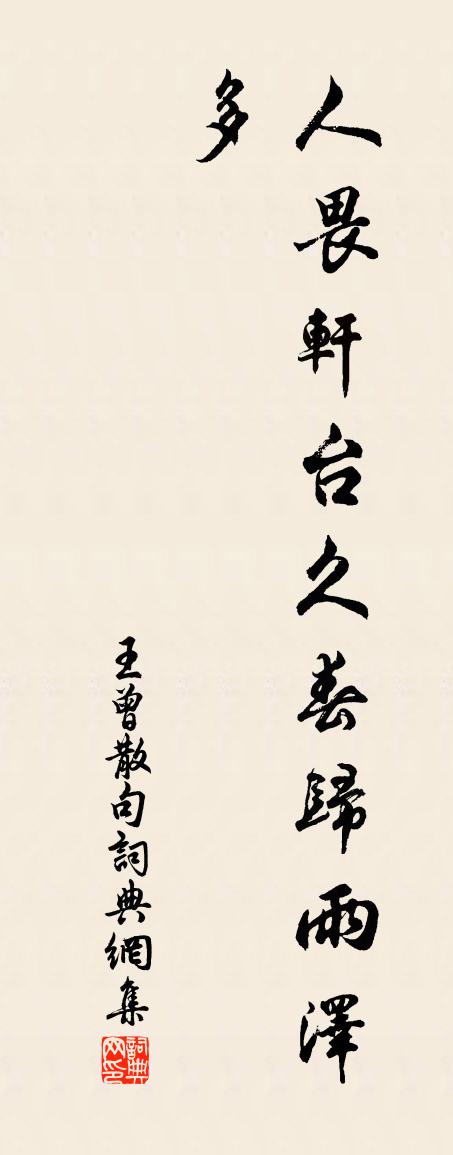 人畏軒台久春歸雨澤
多
王曾散句詞典網集
詞典网印